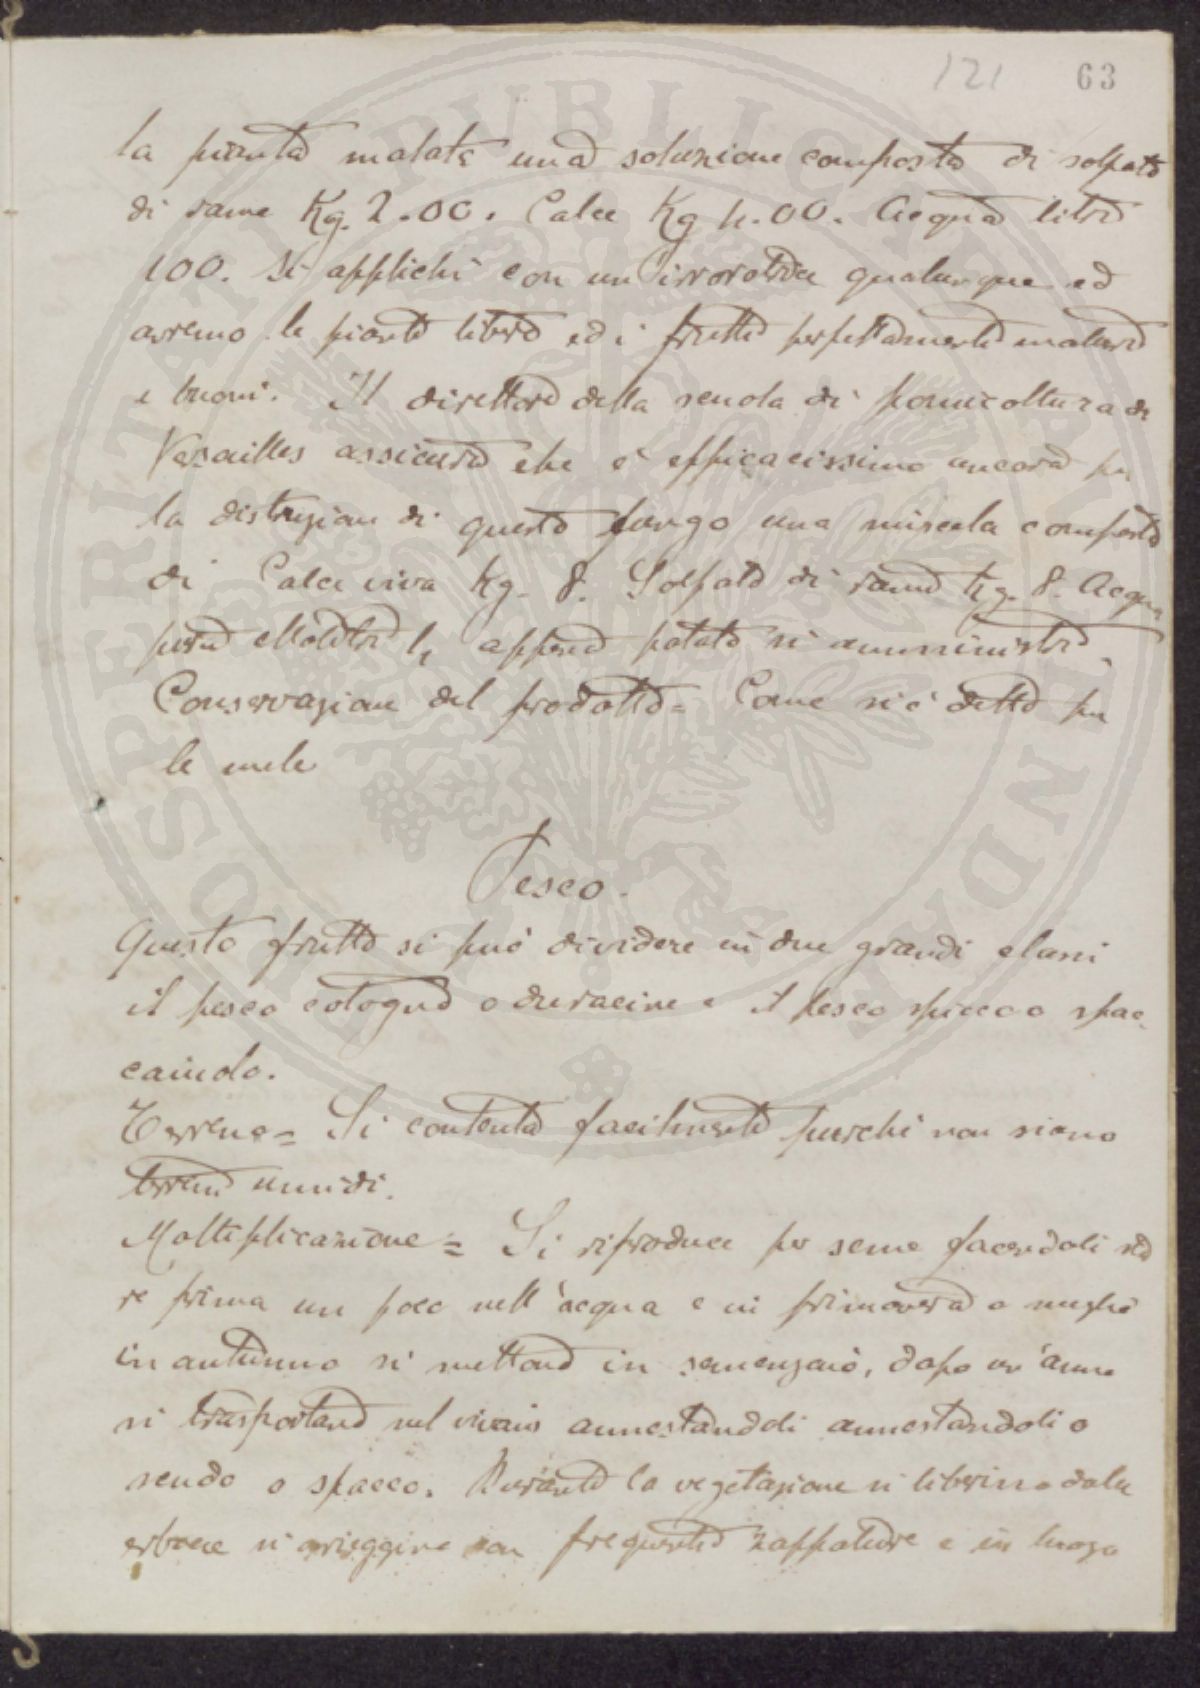 121 63
la pianta malata una soluzione composta di solfato
di rame Kg. 2.00. Calce Kg 4.00. Acqua litri
100. Si applichi con un'irroratrice qualunque ed
avremo le piante libere ed i frutti perfettamente maturi
e buoni. Il direttore della scuola di pomicoltura di
Versailles assicura che è efficacissimo ancora per
la distruzione di questo fungo una miscela composta
di Calce viva Kg. 8. Solfato di rame Kg. 8. Acqua
pura appena potato si amministra
Conservazione del prodotto = Come si è detto per
le mele
Pesco.
Questo frutto si può dividere in due grandi classi
il pesco cotogno o duracine e il pesco spicco o spac-
caiuolo.
Terreno = Si contenta facilmente purchè non siano
terreni umidi.
Moltiplicazione = Si riproduce per seme facendoli
re prima un poco nell'acqua e in primavera o meglio
in autunno si mettono in semenzaio, dopo un'anno
si trasportano nel vivaio annestandoli annestandoli o
scudo o spacco. Durante la vegetazione si liberino dalle
erbacce si arieggino con frequenti zappature e in luogo